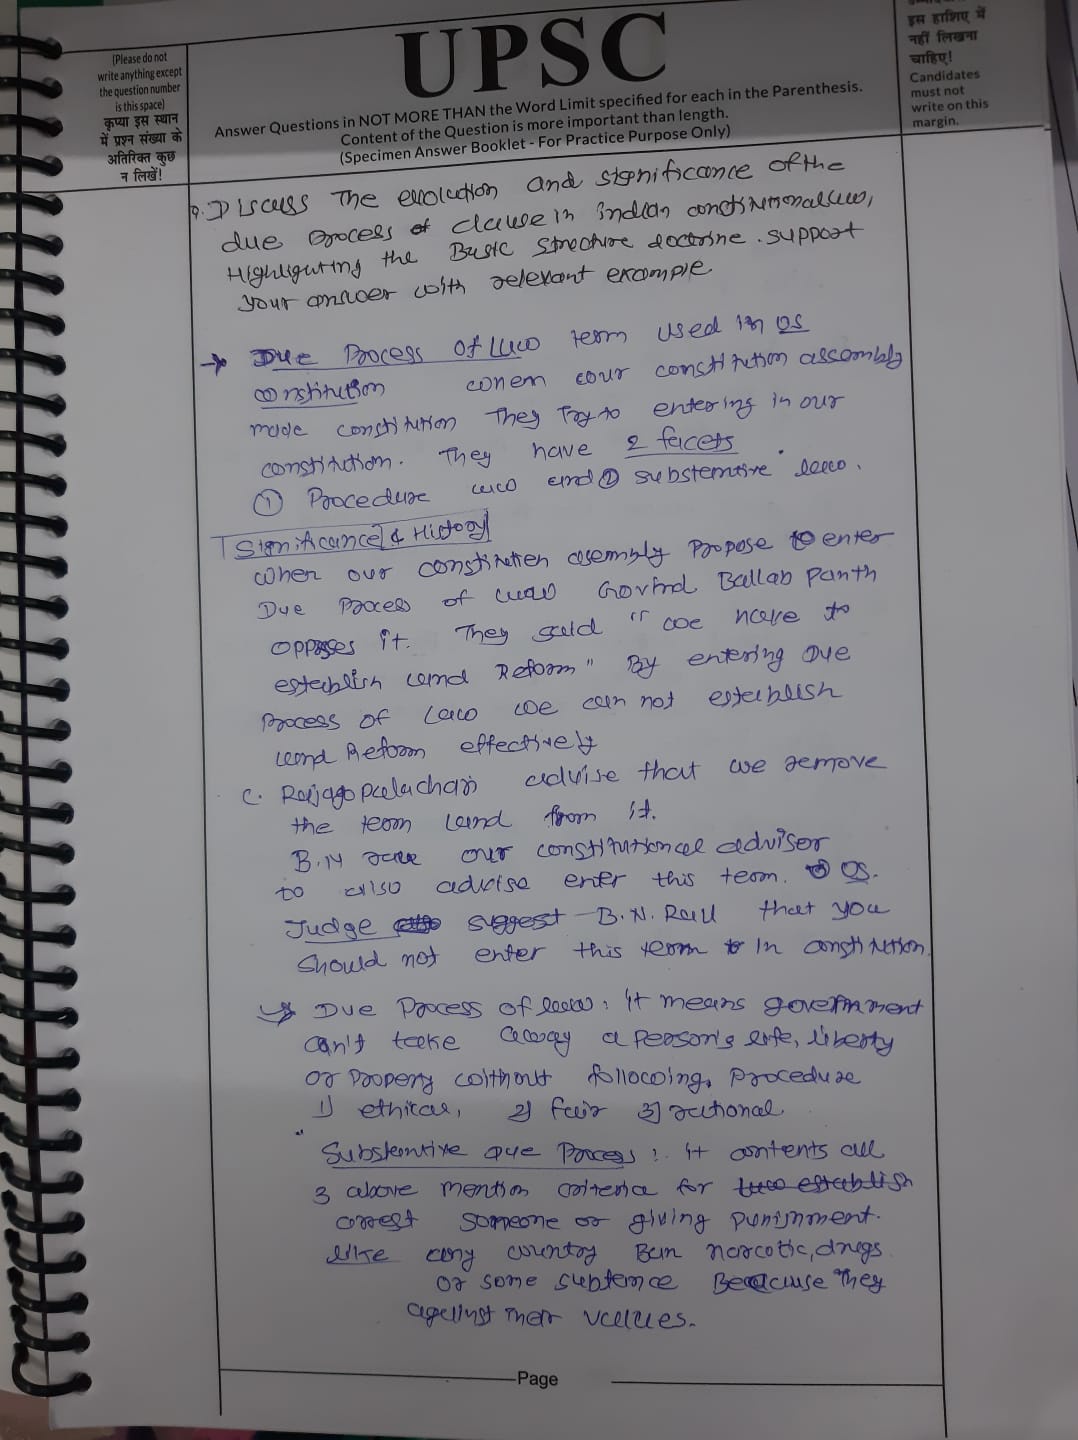 (Please do not
write anything except
the question number
is this space)
कृप्या इस स्थान
में प्रश्न संख्या के
अतिरिक्त कुछ
न लिखें!
UPSC
Answer Questions in NOT MORE THAN the Word Limit specified for each in the Parenthesis.
Content of the Question is more important than length.
(Specimen Answer Booklet - For Practice Purpose Only)
इस हाशिए में
नहीं लिखना
चाहिए!
Candidates
must not
write on this
margin.
Q. Discuss The evolution and significance of the
due process of clause in indian constitutional law,
Highliguting the Basic structure doctrine. support
your answer with relevant example
→ Due Process Of Law term used in US
constitution when our constitution assembly
made constitution They Try to entering in our
constitution. They have 2 facets
① Procedure law and ② substantive law.
Significance & History
When our constitution assembly propose to enter
Due Process of Law Govind Ballab Panth
opposes it. They said "we have to
establish land Reform" By entering Due
Process of Law we can not establish
land Reform effectively
C. Rajagopalachari advise that we remove
the term land from it.
B.N rau our constitutional advisor
to also advise enter this term. US.
Judge suggest B.N. Rau that you
should not enter this term in constitution.
Due Process of law: it means government
can't take away a person's life, liberty
or Property without following, Procedure
1) ethical, 2) fair 3) rational.
Substantive Due Process: it contents all
3 above mention criteria for law establish
arrest someone or giving punishment.
like any country Ban narcotic, drugs
or some substence Beacuse They
against their values.
Page